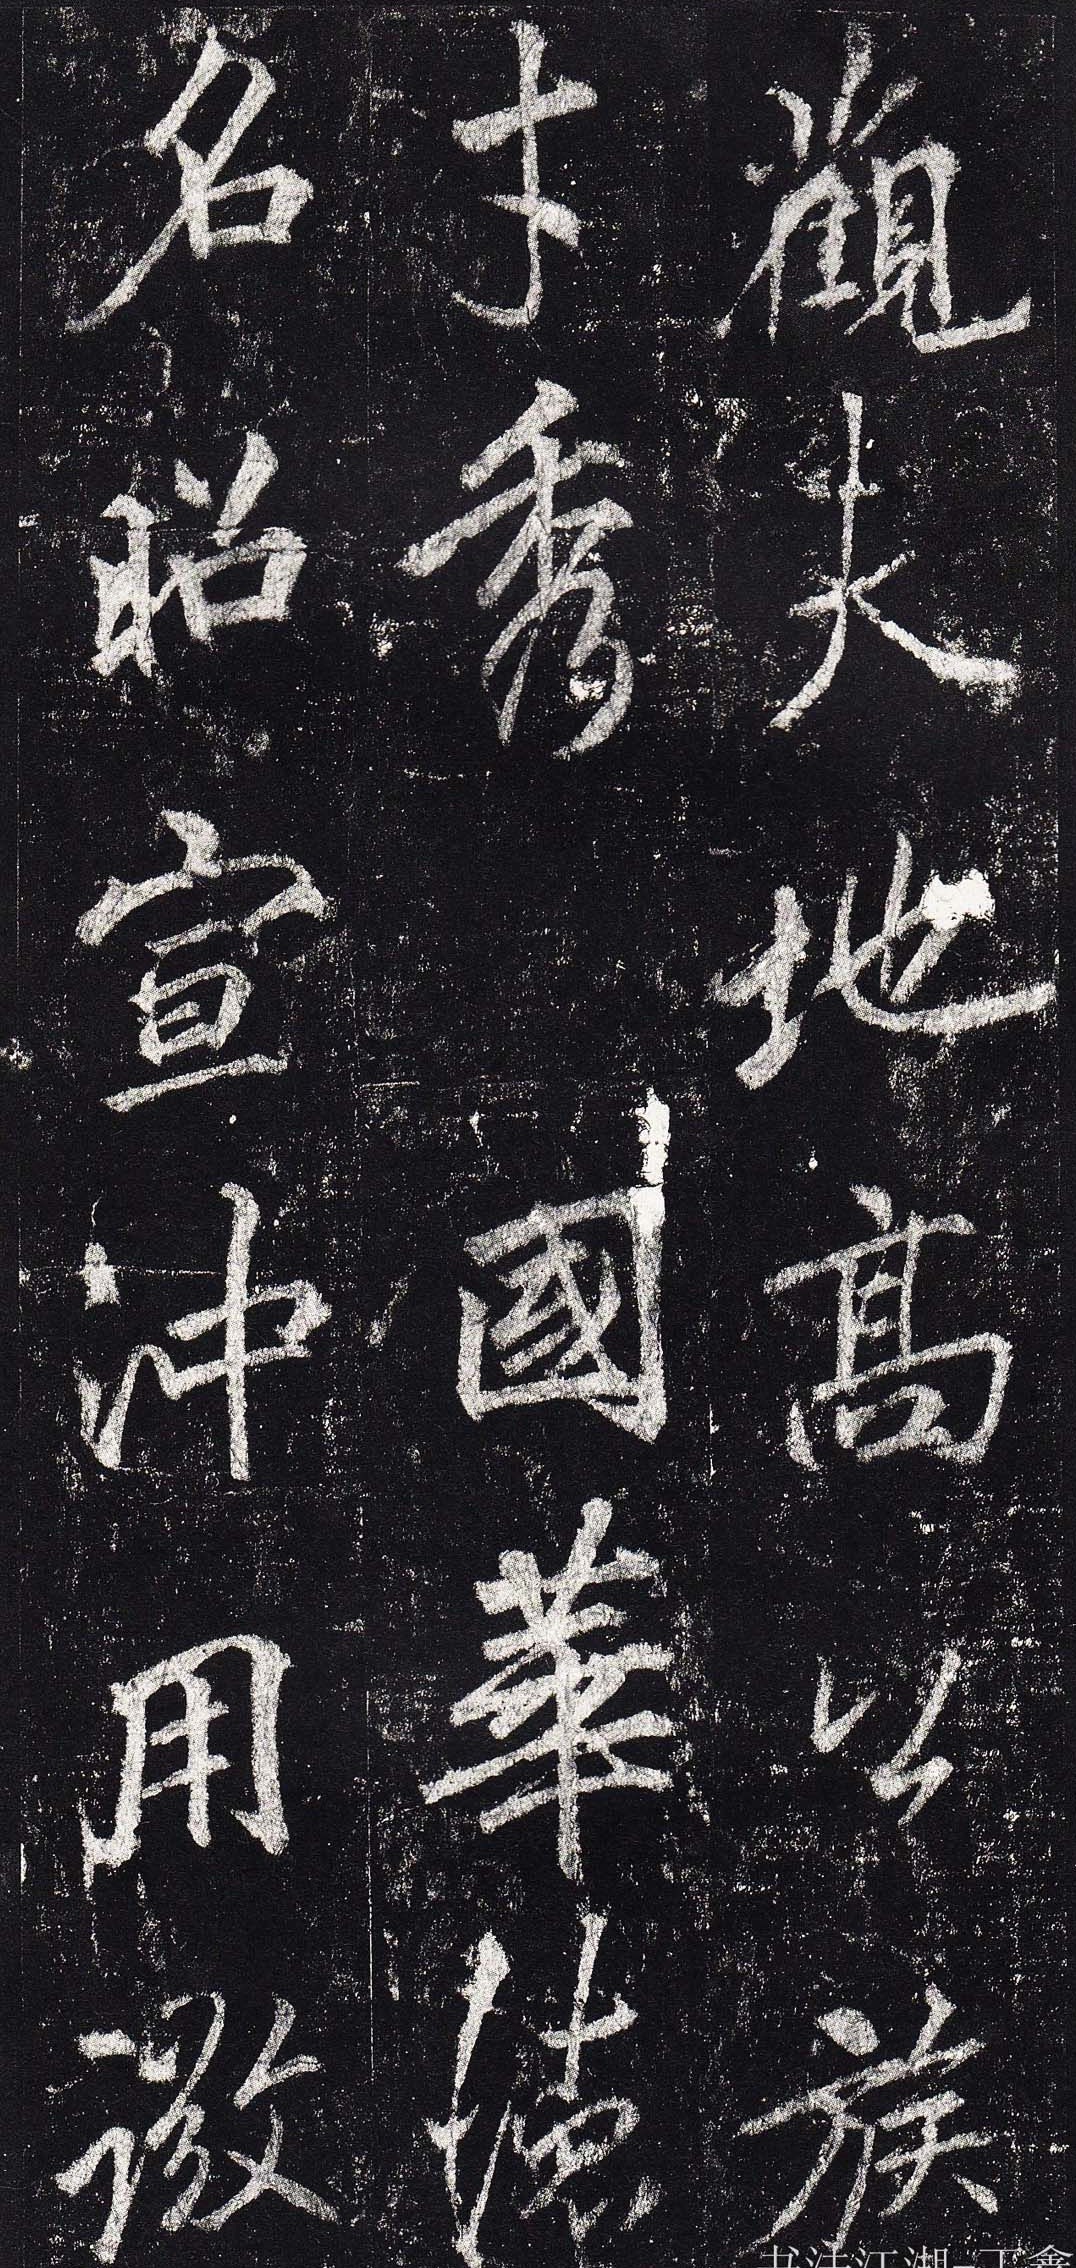 觀夫地高以族
才秀國華德
名昭宣沖用微
书法江湖